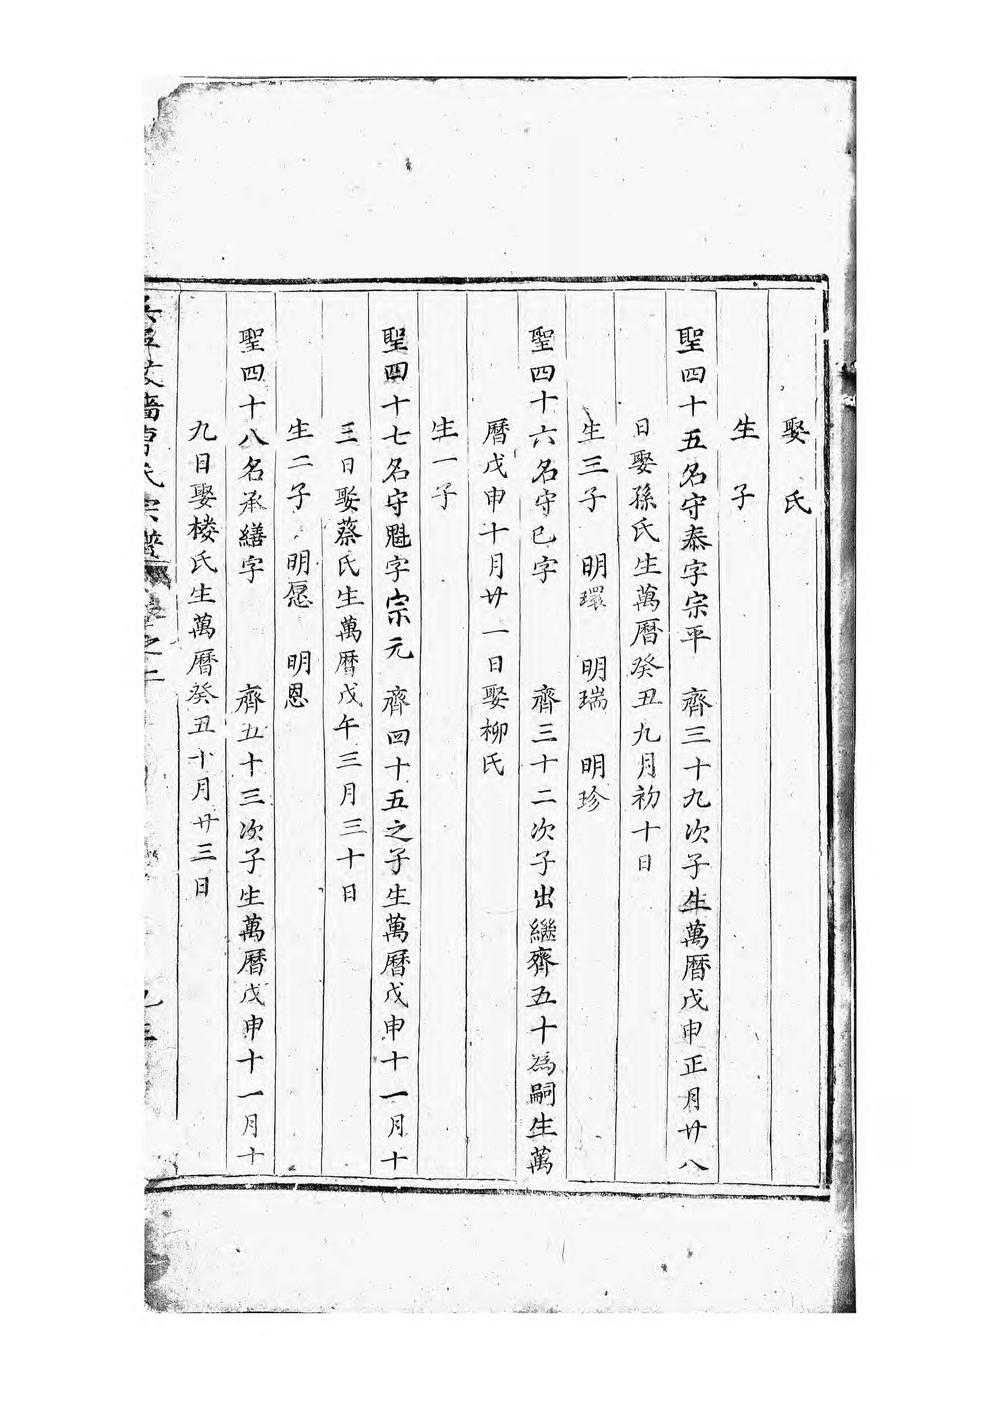 娶　氏
生　子
聖四十五名守泰字宗平　齊三十九次子生萬曆戊申正月廿八
日娶孫氏生萬曆癸丑九月初十日
生三子　明環　明瑞　明珍
聖四十六名守已字　齊三十二次子出繼齊五十為嗣生萬
曆戊申十月廿一日娶柳氏
生一子
聖四十七名守魁字宗元　齊四十五之子生萬曆戊申十一月十
三日娶蔡氏生萬曆戊午三月三十日
生二子　明愿　明恩
聖四十八名承繕字　齊五十三次子生萬曆戊申十一月十
九日娶楼氏生萬曆癸丑十月廿三日
曹氏宗譜　卷之二